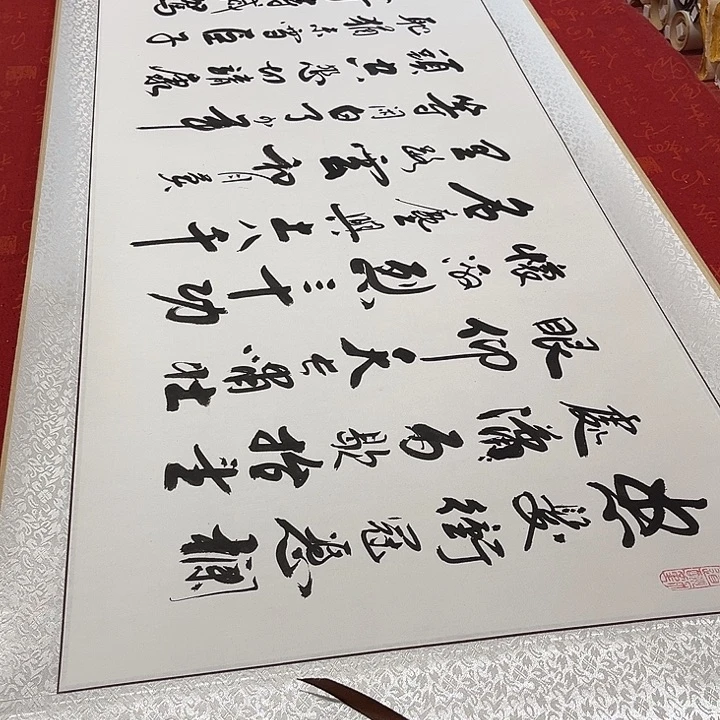 怒髮衝冠憑欄
處瀟〻雨歇抬望
眼仰天長嘯壯
懷激烈三十功
名塵與土八千
里路雲和月莫
等閒白了少年
頭空悲切靖康
恥猶未雪臣子
時滅駕